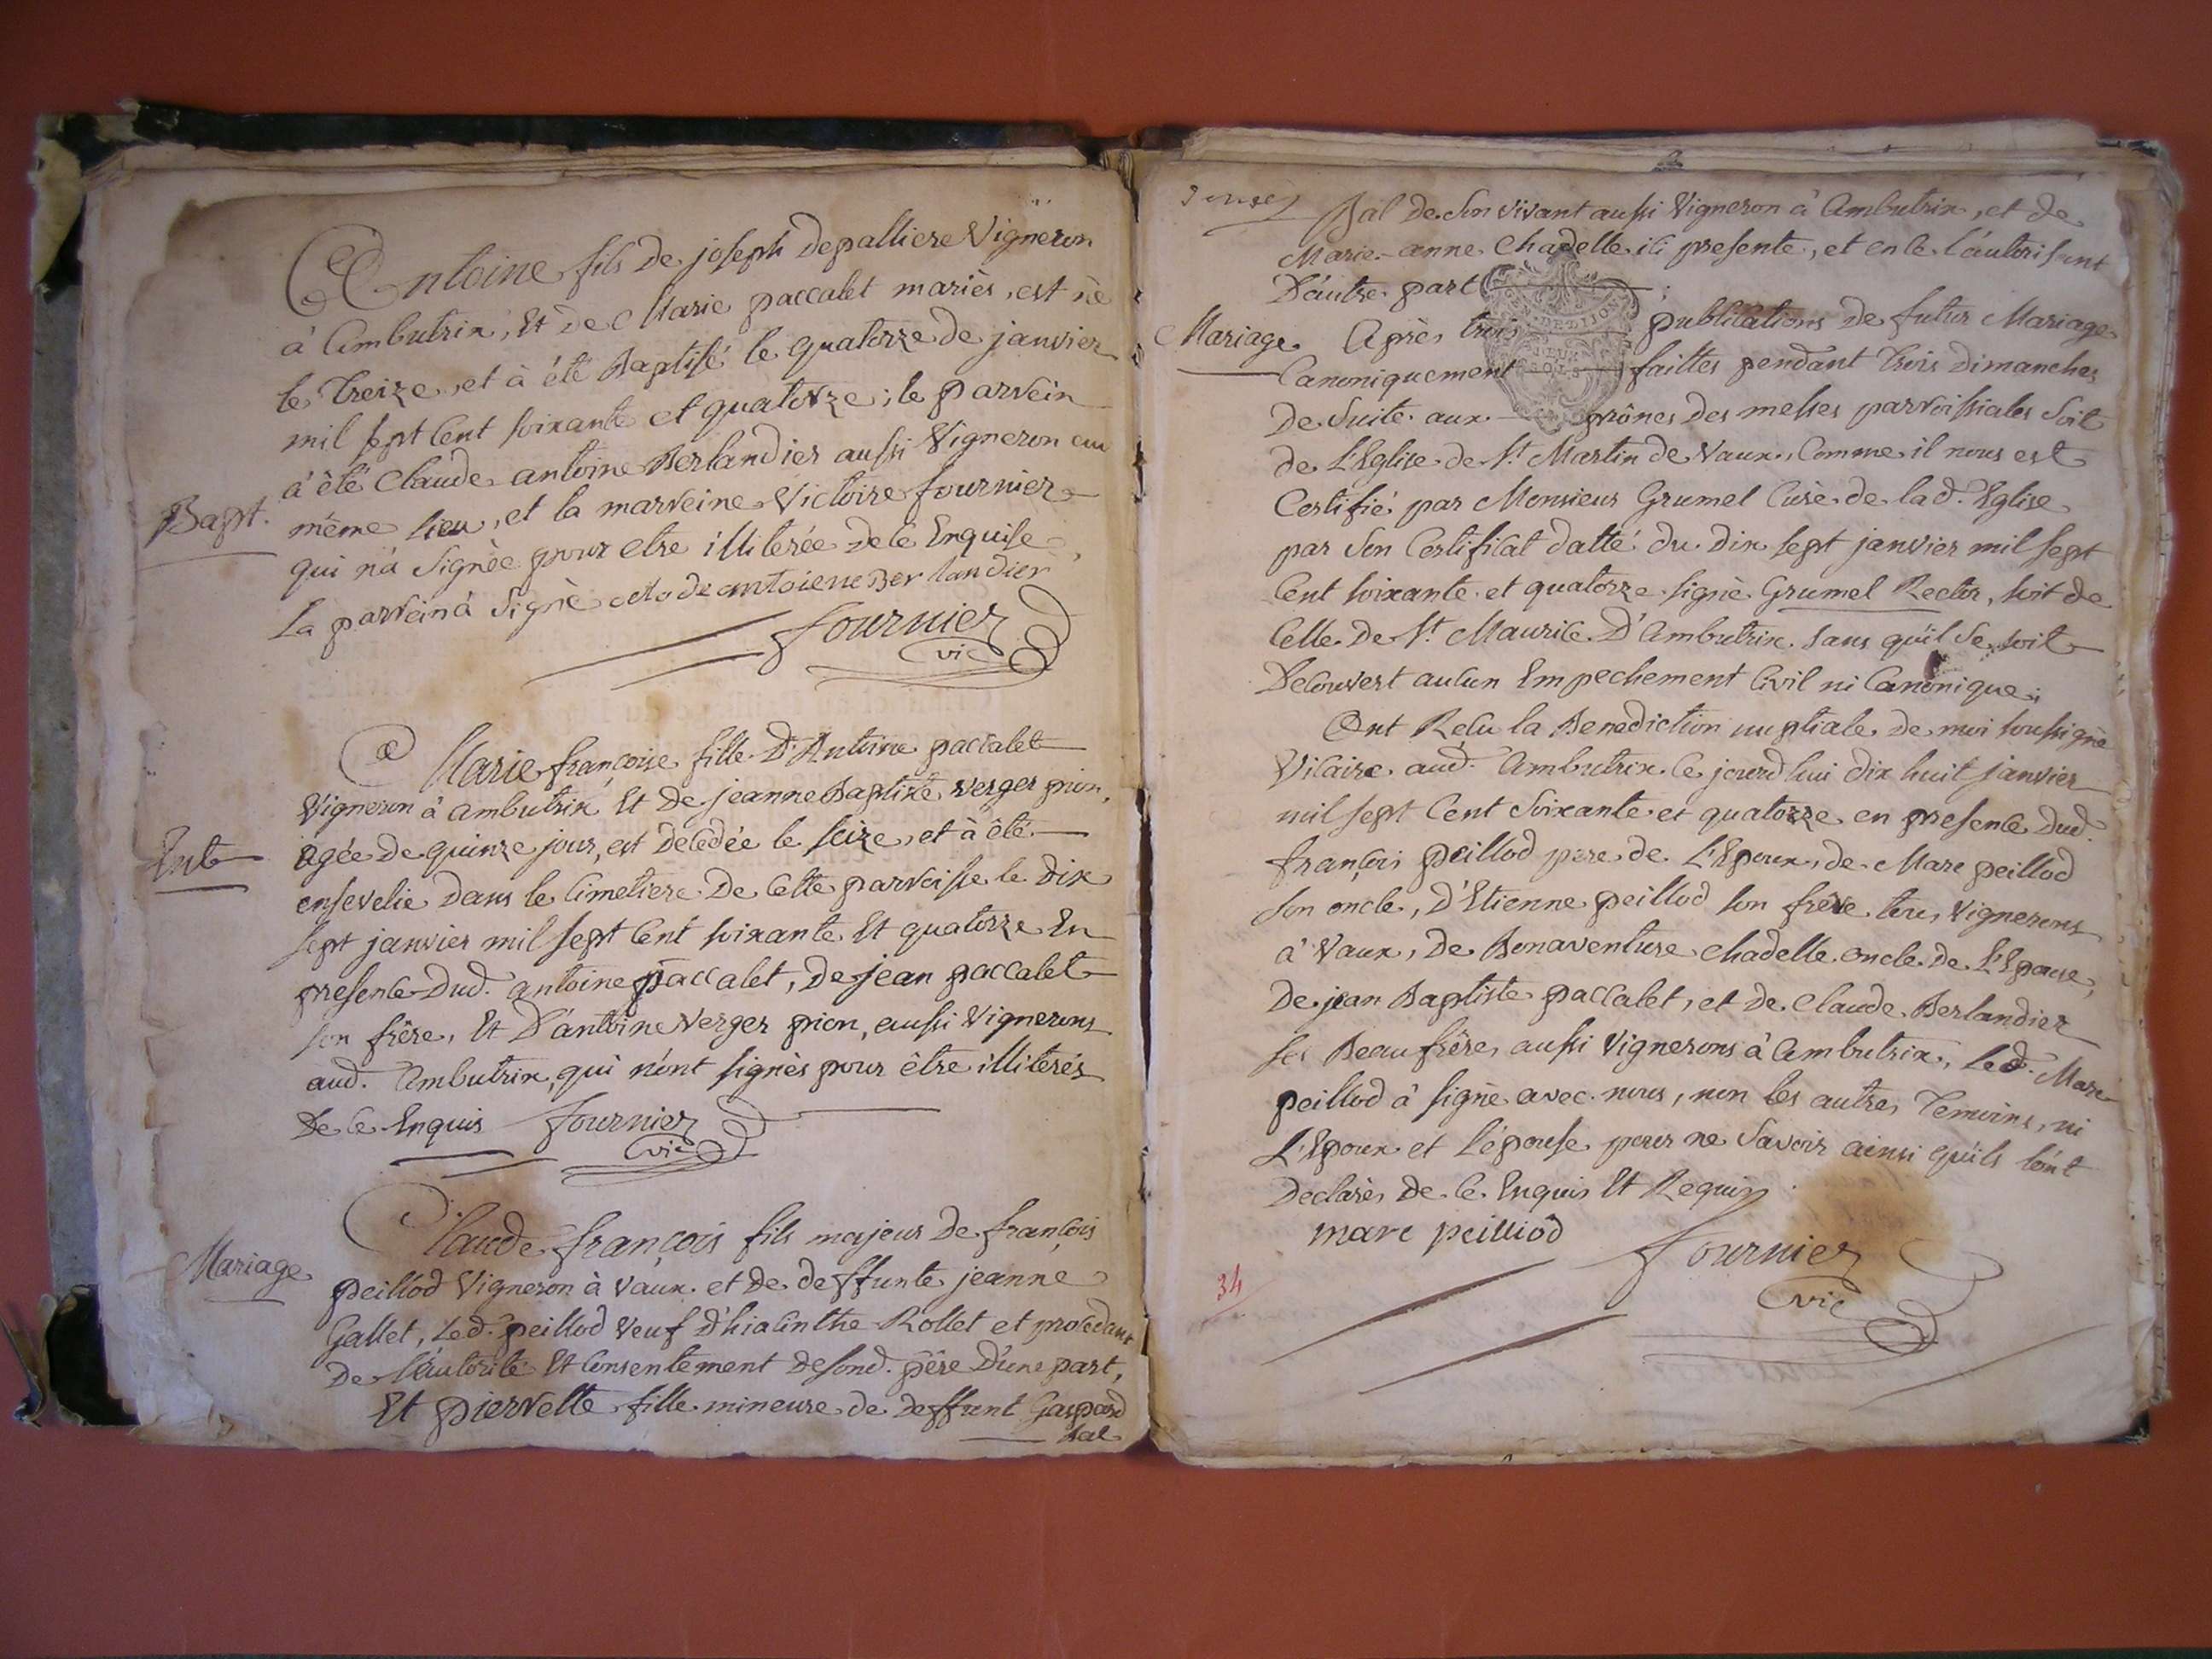 Antoine fils de joseph depalliere Vigneron
à Ambutrix, Et de Marie paccalet mariès, est nè
le treize, et à été Baptisé le quatorze de janvier
mil sept Cent soixante et quatorze; le parrein
à été Claude antoine Berlandier aussi Vigneron au
Bapt.
même lieu, et la marreine Victoire fournier
qui n'à Signée pour etre illiterée de ce Enquise
La parrein à Signè clode antoiene Berlandier
fournier
vic
Marie françoise fille D'Antoine paccalet
Vigneron à Ambutrix Et de jeanne Baptiste Verger pion,
Ent
agée de quinze jour, est décédée le seize, et à été
ensevelie dans le Cimetiere De Cette parroisse le dix
sept janvier mil sept Cent soixante Et quatorze En
presence dud. antoine paccalet, de jean paccalet
son frêre, Et D'antoine Verger pion, aussi Vignerons
aud. Ambutrix, qui n'ont signès pour être illiterés
De ce Enquis fournier
vic
Mariage
Claude françois fils majeur de françois
peillod Vigneron à Vaux et de deffunte jeanne
Gallet, led. peillod Veuf d'hiacinthe Rollet et procedant
De l'autorité Et Consentement de sond. père D'une part,
Et pierrette fille mineure de deffunt Gaspard
Bal
Bal de son vivant aussi Vigneron à Ambutrix, et de
Marie-anne Chadelle ici presente, et en ce l'autorisant
D'autre part;
Mariage
Après trois publications de futur Mariage
Canoniquement faittes pendant trois dimanches
De Suite aux prônes des messes parroissiales soit
de L'Eglise de St. Martin de Vaux, Comme il nous est
Certifié par Monsieur Grumel Curé de lad. Eglise
par son Certificat datté du dix sept janvier mil sept
Cent soixante et quatorze signè Grumel Rector, soit de
Celle de St. Maurice D'Ambutrix sans qu'il se soit
Decouvert aucun Empechement Civil ni Canonique;
Ont Reçu la Benediction nuptiale de moi soussignè
Vicaire aud. Ambutrix ce jourd'hui dix huit janvier
mil sept Cent Soixante et quatorze en presence dud.
françois peillod pere de L'Epoux, de Marc peillod
son oncle, D'Etienne peillod son frère tous Vignerons
à Vaux, de Bonaventure chadelle oncle de L'Epouse,
De jean Baptiste paccalet, et de Claude Berlandier
ses Beaufrères aussi Vignerons à Ambutrix, Led. Marc
peillod à signè avec nous, non les autres Temoins, ni
L'Epoux et L'épouse pour ne Savoir ainsi qu'ils l'ont
Declarès de ce Enquis Et Requis
marc peilliod
fournier
vic
34